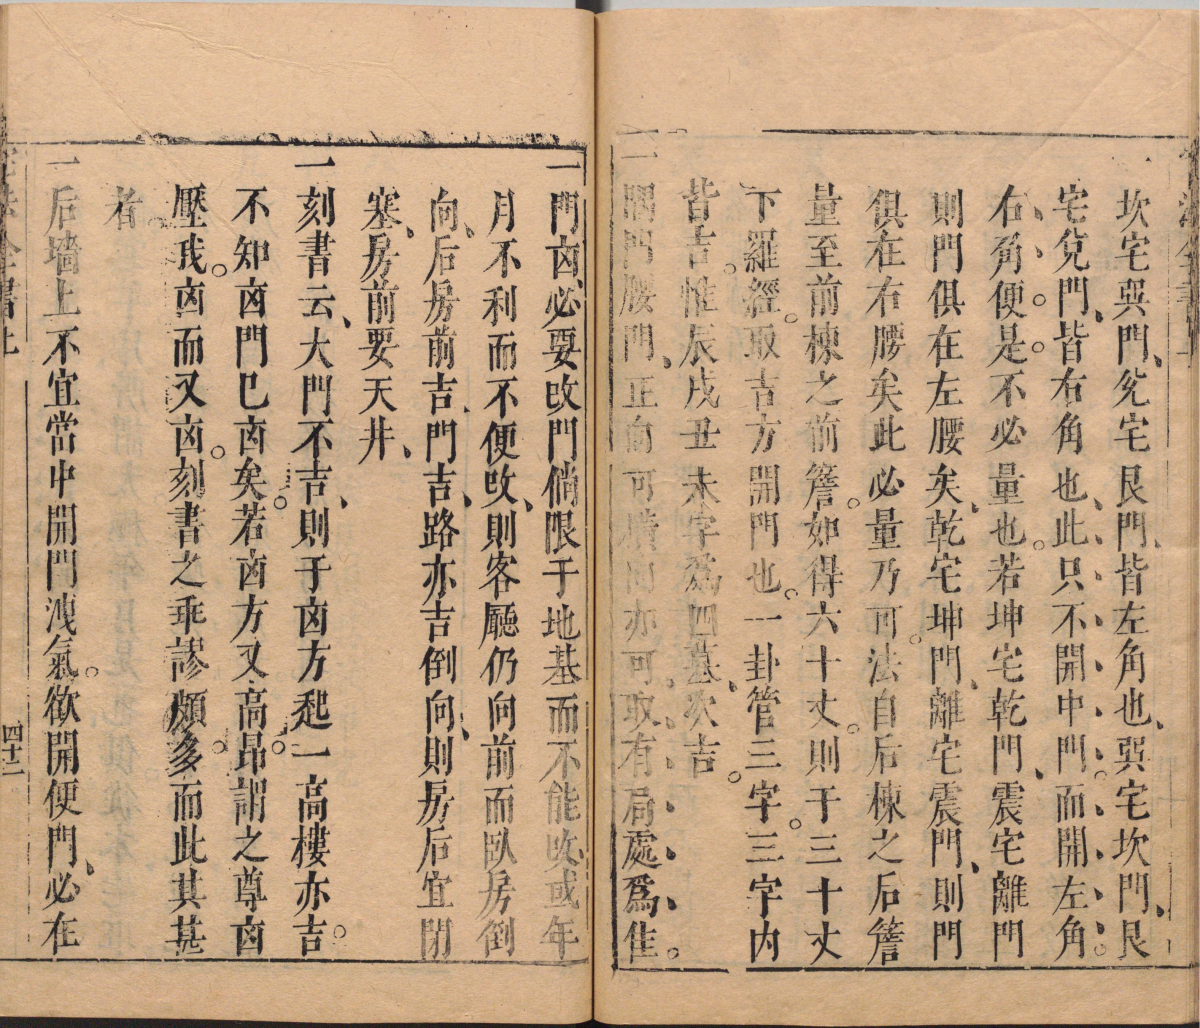 坎宅巽門、兊宅艮門、皆左角也、巽宅坎門、艮
宅兌門、皆右角也、此只不開中門。而開左角
右角便是。不必量也。若坤宅乾門、震宅離門
則門俱在左腰矣、乾宅坤門、離宅震門、則門
俱在右腰矣此必量乃可。法自后棟之后簷
量至前棟之前簷。如得六十丈。則于三十丈
下羅經。取吉方開門也。一卦管三字。三字内
皆吉。惟辰戌丑未字爲四墓、次吉。
一腰門、正向可橫向亦可取有局處爲佳。
一門凶、必要改門倘限于地基而不能改、或年
月不利而不便改、則客廳仍向前而臥房倒
向、后房前吉、門吉、路亦吉倒向、則房后宜閉
塞、房前要天井、
一刻書云、大門不吉、則于凶方起一高樓亦吉。
不知凶門已凶矣。若凶方又高昂。謂之尊凶
壓我。凶而又凶。刻書之乖謬頗多。而此其甚
者。
一后墻上不宜當中開門洩氣。欲開便門、必在
四十二